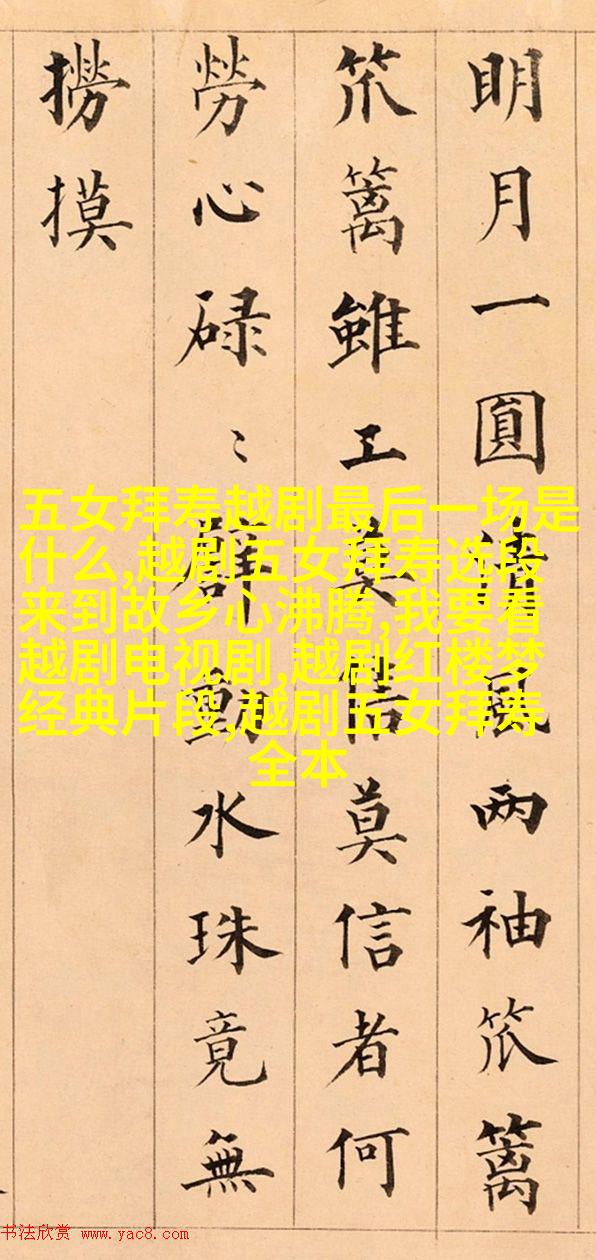 明月一圓清風两袖笊篱
笊篱雖工莫信莫信者何
勞心碌〻動水珠竟無
撈摸
五女拜寿越剧最后一场是
什么,越剧五女拜寿选段
来到故乡心沸腾,我要看
越剧电视剧,越剧红楼梦
经典片段,越剧五女拜寿
全本
书法欣赏 www.yac8.com